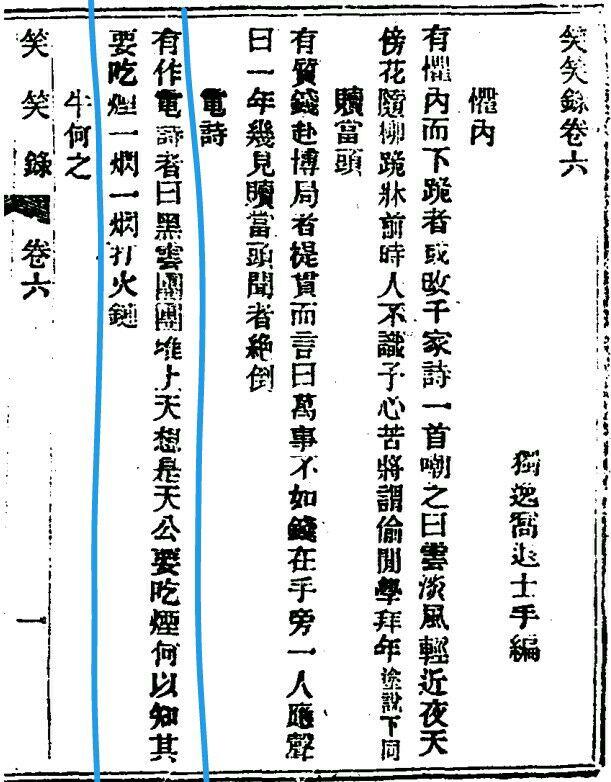 笑笑錄卷六
獨逸窩退士手編
懼內
有懼內而下跪者或改千家詩一首嘲之曰雲淡風輕近夜天
傍花隨柳跪牀前時人不識予心苦將謂偷閒學拜年塗說下同
贖當頭
有質錢赴博局者提貫而言曰萬事不如錢在手旁一人應聲
曰一年幾見贖當頭聞者絕倒
電詩
有作電詩者曰黑雲團團堆上天想是天公要吃煙何以知其
要吃煙一爓一爓打火鏈
牛何之
笑笑錄 卷六 一